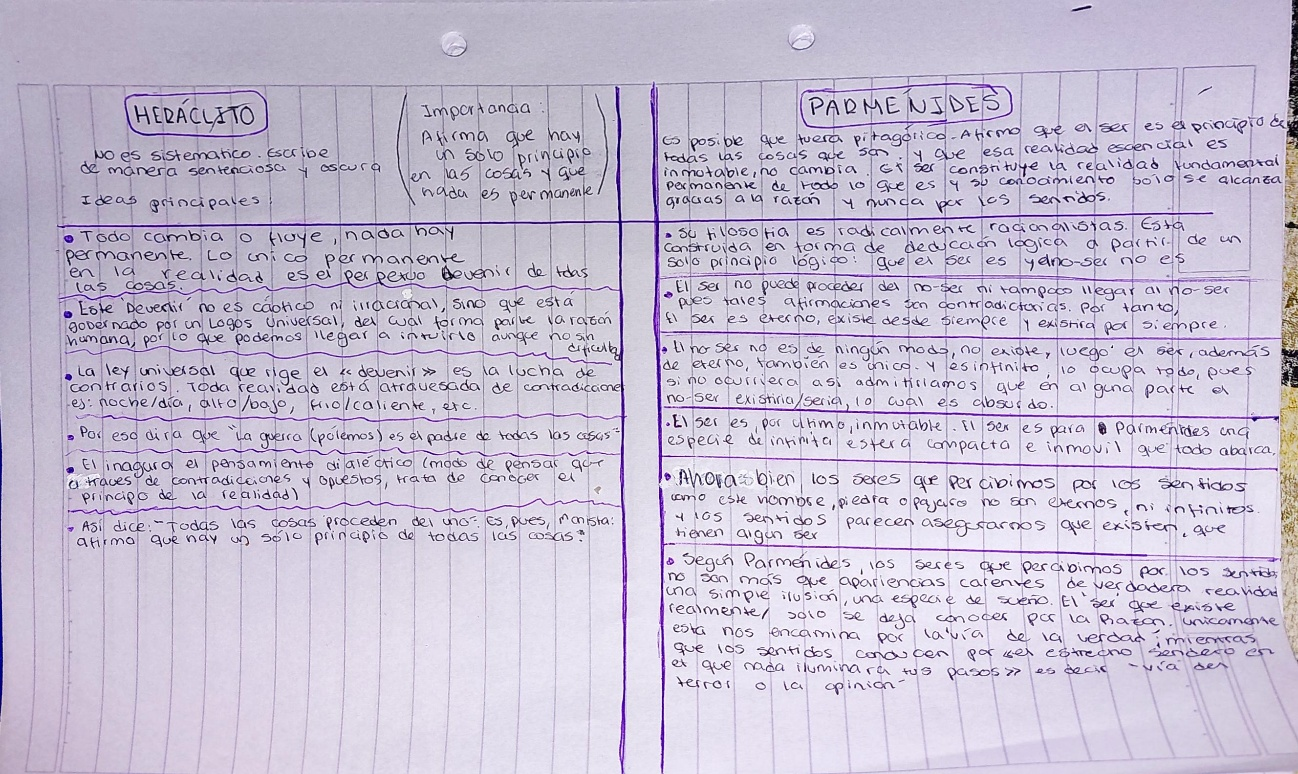 HERÁCLITO
No es sistematico. Escribe
de manera sentenciosa y oscura
Ideas principales:
Importancia:
Afirma que hay
un solo principio
en las cosas y que
nada es permanente
• Todo cambia o fluye, nada hay
permanente. Lo único permanente
en la realidad es el perpetuo devenir de todas
las cosas.
• Este Devenir no es cáotico ni irracional, sino que está
gobernado por un Logos Universal, del cual forma parte la razón
humana, por lo que podemos llegar a intuirlo aunque no sin
dificultad
• La ley universal que rige el «devenir» es la lucha de
contrarios. Toda realidad está atravesada de contradicciones
ej: noche/día, alto/bajo, frio/caliente, etc.
• Por eso dira que "La guerra (pólemos) es el padre de todas las cosas"
• El inagura el pensamiento dialéctico (modo de pensar que
a traves de contradicciones y opuestos, trata de conocer el
principo de la realidad)
• Asi dice: "Todas las cosas proceden del uno" es, pues, monista:
afirmo que hay un solo principio de todas las cosas."
PARMÉNIDES
Es posible que fuera pitagórico. Afirmo que el ser es el principio de
todas las cosas que son, y que esa realidad escencial es
inmotable, no cambia. El ser constituye la realidad fundamental
permanente de todo lo que es y su conocimiento solo se alcanza
gracias a la razón y nunca por los sentidos.
• Su filosofia es radicalmente racionalistas. Está
construida en forma de deducción lógica a partir de un
solo principio lógico: que el ser es y el no-ser no es
• El ser no puede proceder del no-ser ni tampoco llegar al no-ser
pues tales afirmaciones son contradictorias. Por tanto,
El ser es eterno, existe desde siempre y existira por siempre.
• El no ser no es de ningún modo, no existe, luego el ser, además
de eterno, también es único. Y es infinito, lo ocupa todo, pues
si no ocurriera asi admitiriamos que en alguna parte el
no-ser existiria/seria, lo cual es absurdo.
• El ser es, por ultimo, inmutable. El ser es para Parmenides una
especie de infinita esfera compacta e inmovil que todo abarca.
• Ahora bien los seres que percibimos por los sentidos
como este hombre, piedra o pajaro no son eternos, ni infinitos.
y los sentidos parecen asegurarnos que existen, que
tienen algun ser
• Según Parménides, los seres que percibimos por los sentidos
no son más que apariencias carentes de verdadera realidad
una simple ilusión, una especie de sueño. El "ser" que existe
realmente, solo se deja conocer por la Razon. unicamente
esta nos encamina por la vía de la verdad, mientras
que los sentidos conducen por «el estrecho sendero en
el que nada iluminará tus pasos» es decir "vía del
terror o la opinión"